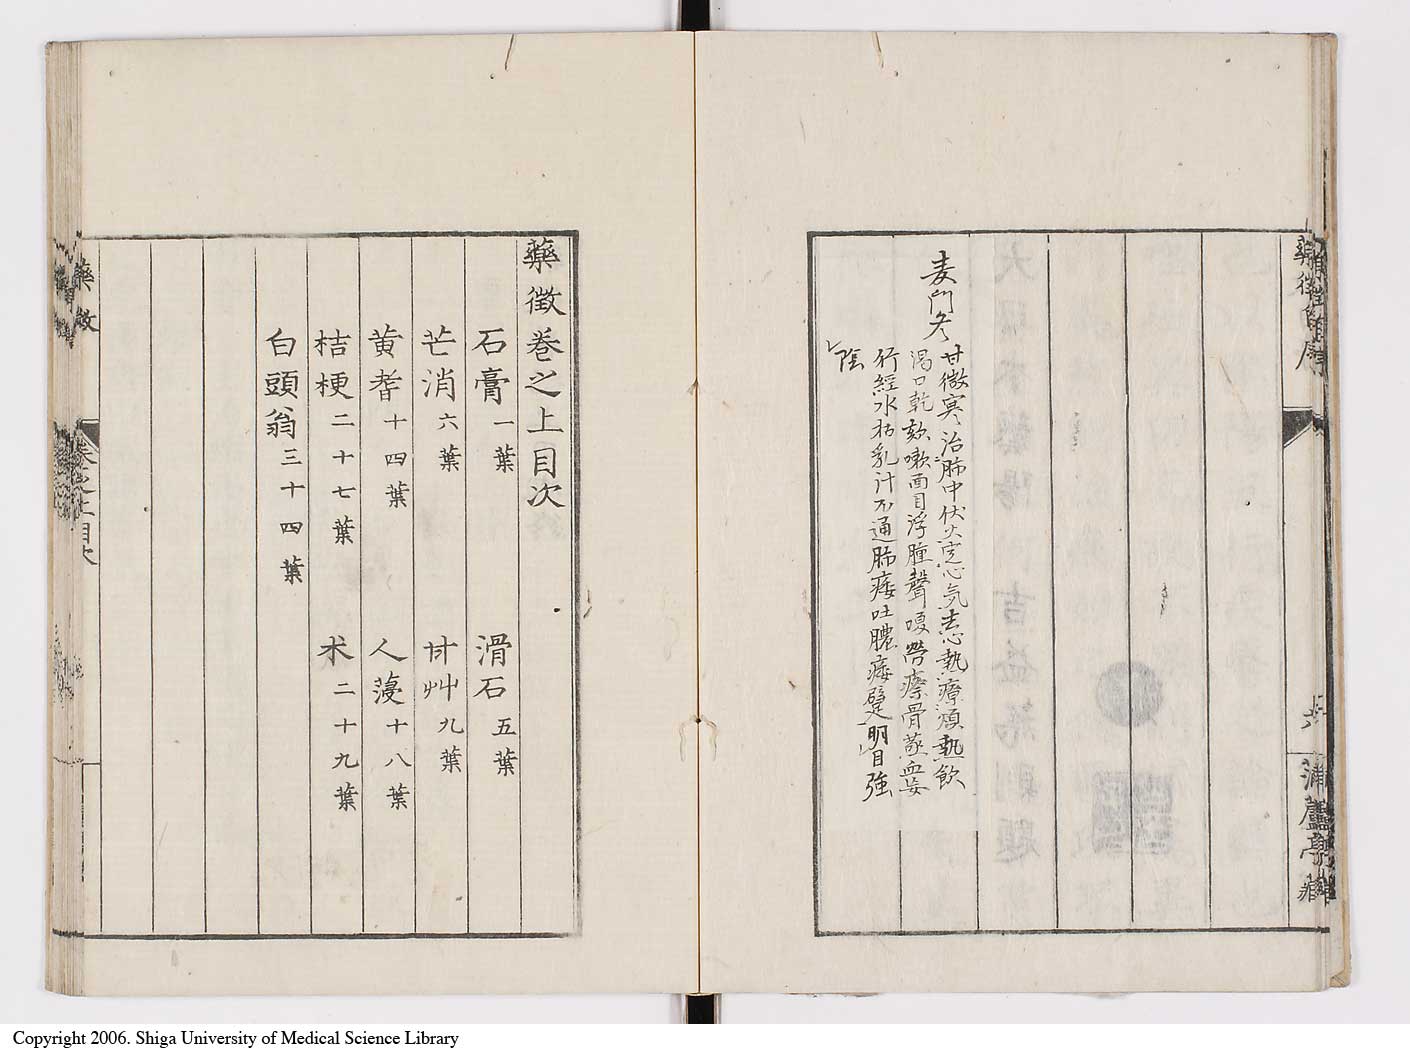 藥徴自序
蒲廬亭藏
麦門冬
甘微寒治肺中伏火定心気悲心熱療煩熱飲
渇口乾欬嗽面目浮腫聲嗄帶療骨蒸血妄
行經水枯乳汁不通肺痿吐膿痿躄明目強
陰
藥徴卷之上目次
石膏一葉 滑石五葉
芒消六葉 甘艸九葉
黄耆十四葉 人薓十八葉
桔梗二十七葉 朮二十九葉
白頭翁三十四葉
藥徴 卷之上目次
Copyright 2006. Shiga University of Medical Science Library